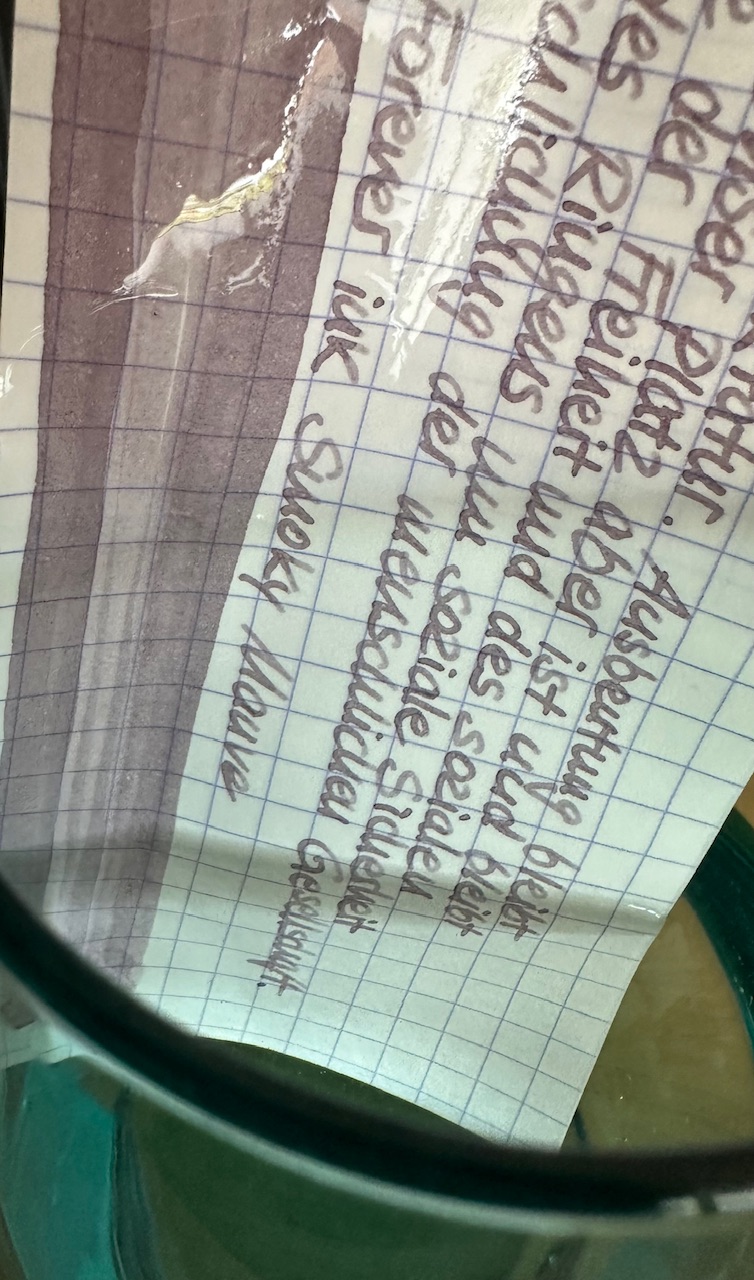 Ausbeutung bleibt
Platz aber ist und bleibt
der Freiheit und des sozialen
des Ringens um soziale Sicherheit
der menschlichen Gesellschaft.
Forever ink Smoky Mauve